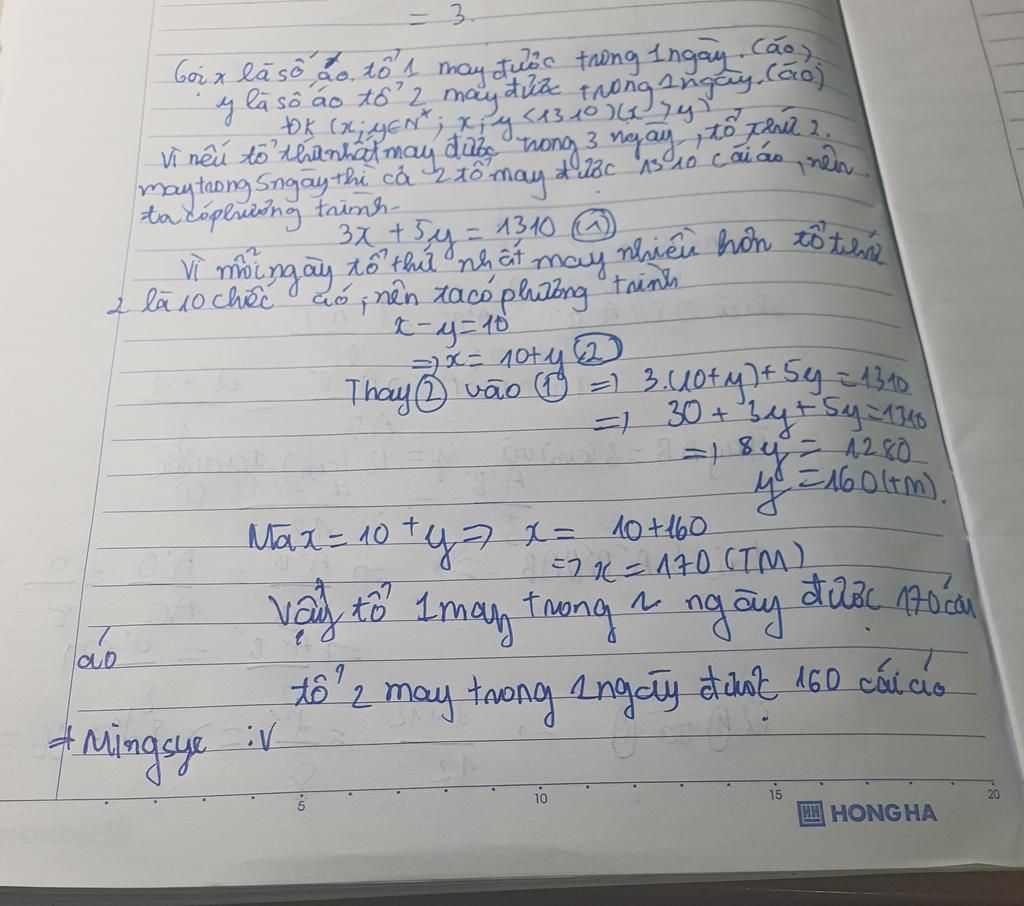 = 3.
Gọi x là số áo tổ 1 may được trong 1 ngày. (áo)
y là số áo tổ 2 may được trong 1 ngày. (áo)
ĐK (x; y ∈ N*; x; y < 1310) (x > y)
Vì nếu tổ thứ nhất may được trong 3 ngày, tổ thứ 2.
may trong 5 ngày thì cả 2 tổ may được 1310 cái áo, nên
ta có phương trình
3x + 5y = 1310 ①
Vì mỗi ngày tổ thứ nhất may nhiều hơn tổ thứ
2 là 10 chiếc áo, nên ta có phương trình
x - y = 10
=> x = 10 + y ②
Thay ② vào ① => 3.(10+y) + 5y = 1310
=> 30 + 3y + 5y = 1310
=> 8y = 1280
y = 160 (TM).
Mà x = 10 + y => x = 10 + 160
=> x = 170 (TM)
Vậy tổ 1 may trong 1 ngày được 170 cái
áo
tổ 2 may trong 1 ngày được 160 cái áo
+ Mingsye :v
5 10 15 20
HH HONG HA